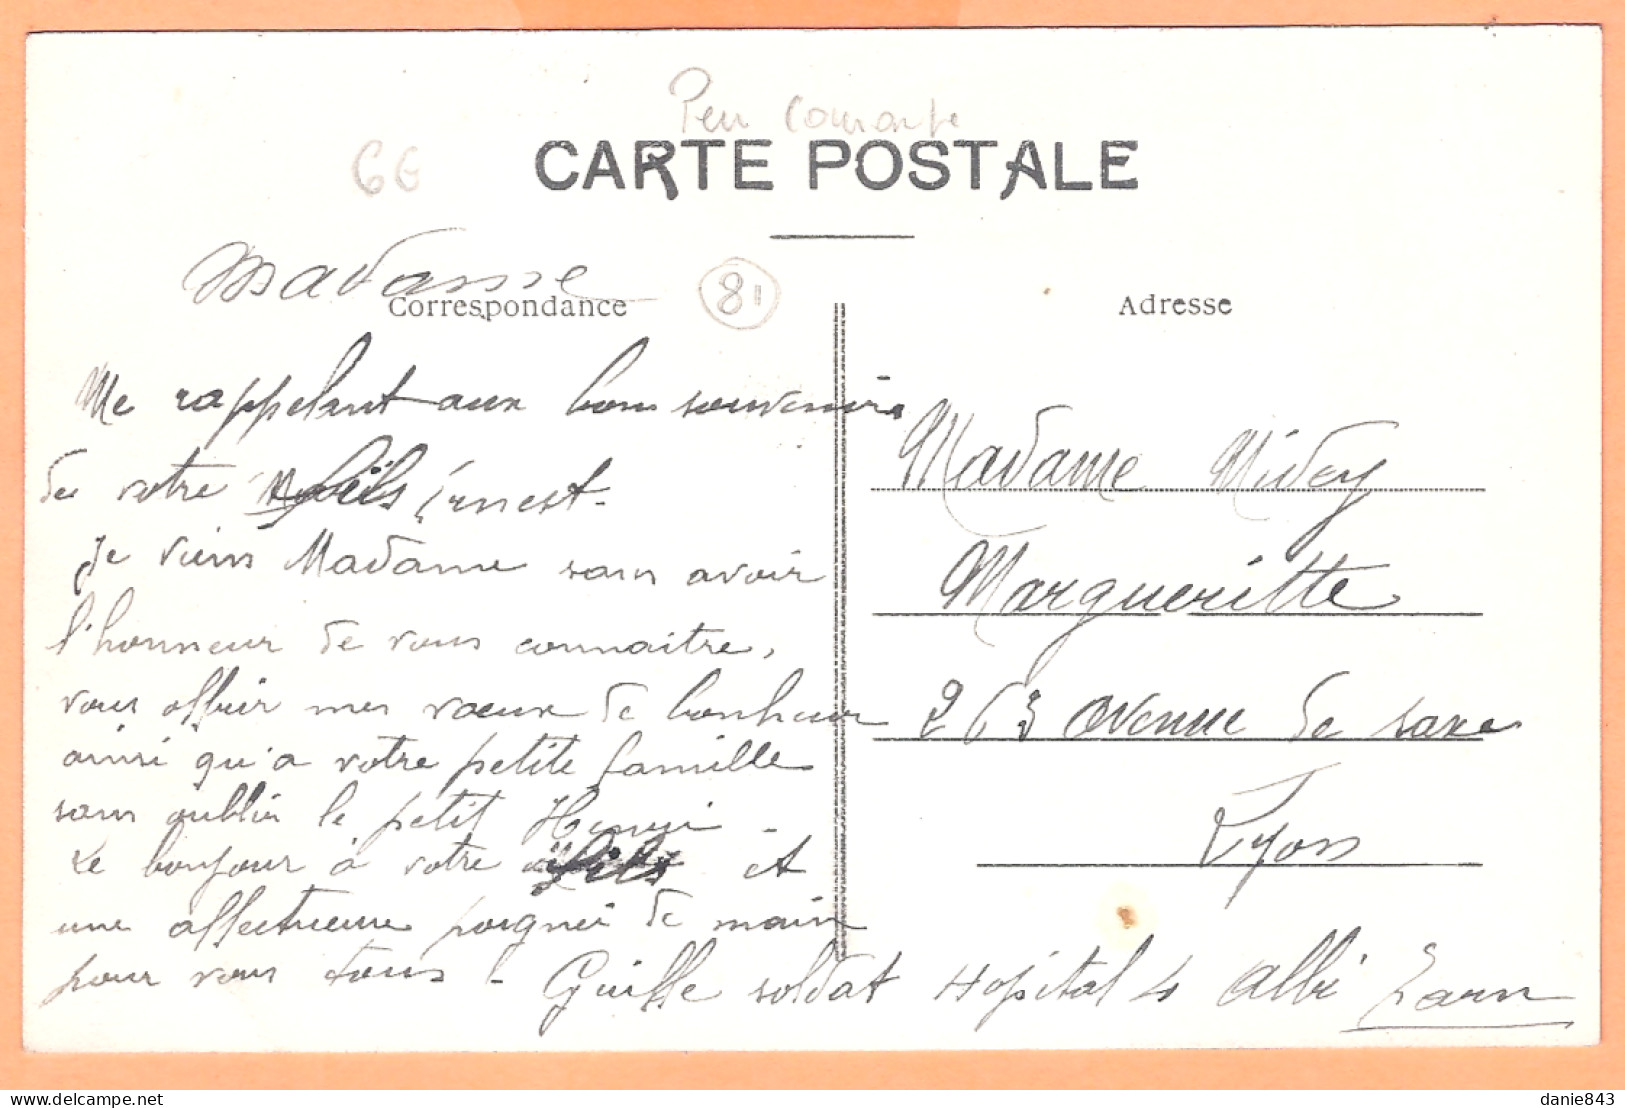 Peu courante
6€
CARTE POSTALE
Madame
81
Correspondance
Adresse
Me rappelant aux bons souvenirs
de votre fils Ernest.
Je viens Madame sans avoir
l'honneur de vous connaitre,
vous offrir mes vœux de bonheur
ainsi qu'a votre petite famille
sans oublier le petit Henri -
Le bonjour à votre fils et
une affectueuse poignée de main
pour vous tous -
Guisse soldat Hopital 4 Albi Tarn
Madame Midey
Margueritte
263 avenue de saxe
Lyon
danie843